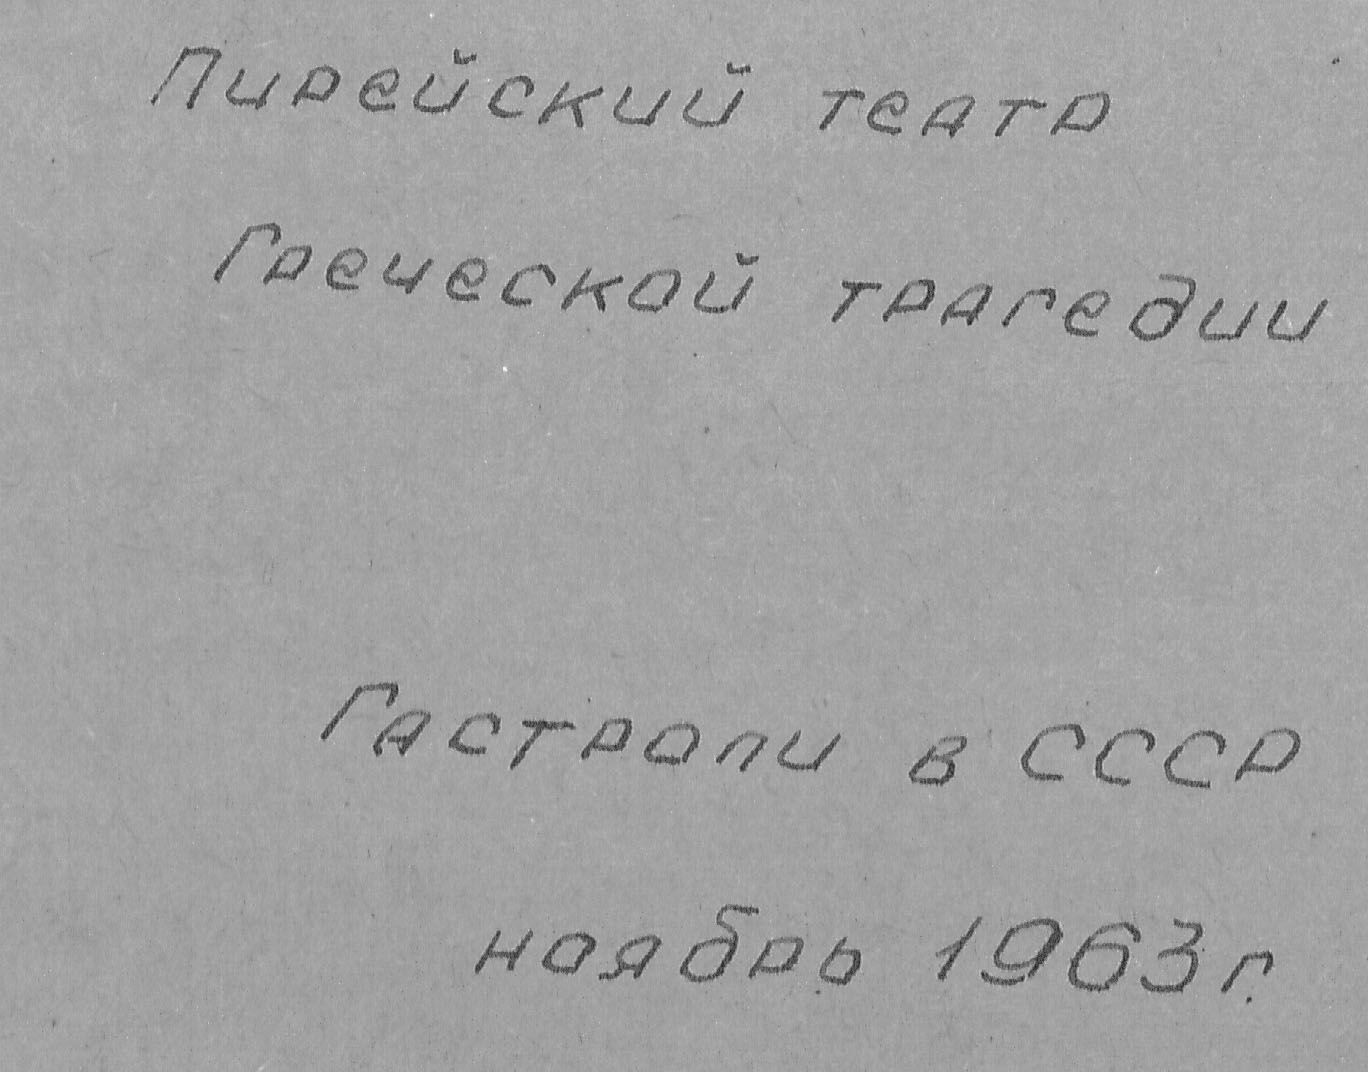 Пирейский театр
Греческой трагедии
Гастроли в СССР
ноябрь 1963 г.